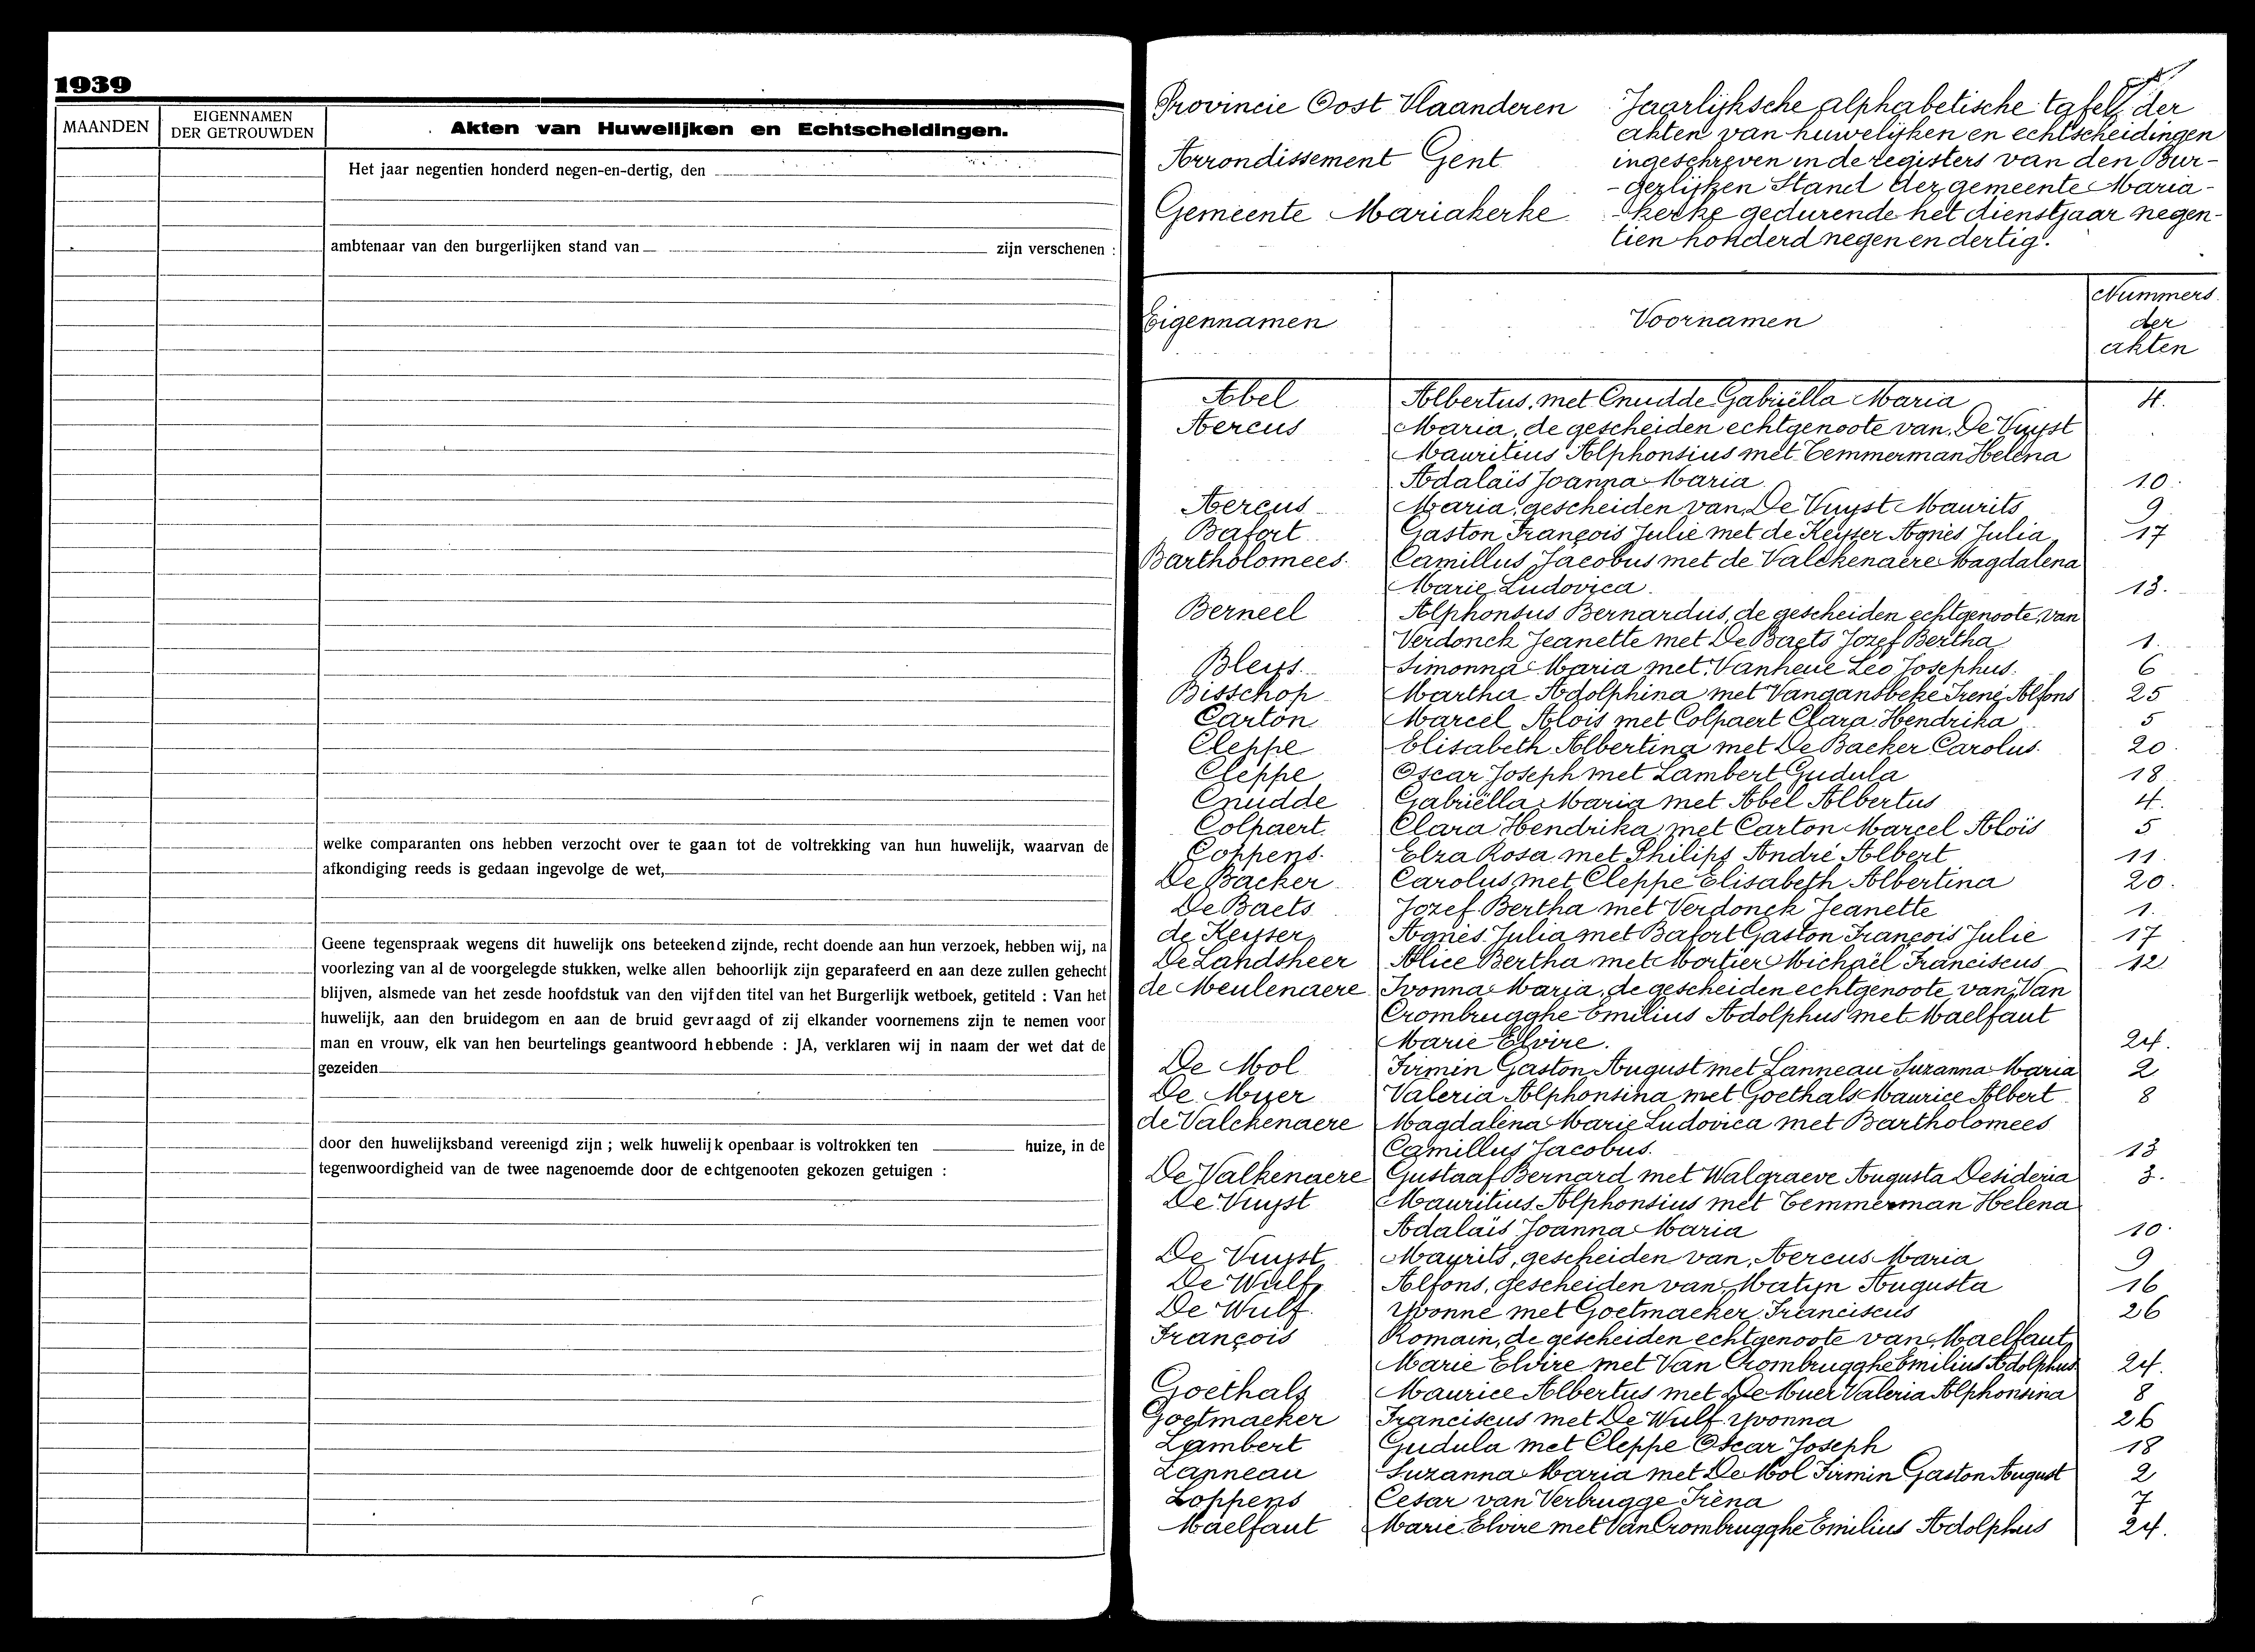 1939
MAANDEN
EIGENNAMEN
DER GETROUWDEN
Akten van Huwelijken en Echtscheidingen.
Het jaar negentien honderd negen-en-dertig, den
ambtenaar van den burgerlijken stand van zijn verschenen :
welke comparanten ons hebben verzocht over te gaan tot de voltrekking van hun huwelijk, waarvan de
afkondiging reeds is gedaan ingevolge de wet,
Geene tegenspraak wegens dit huwelijk ons beteekend zijnde, recht doende aan hun verzoek, hebben wij, na
voorlezing van al de voorgelegde stukken, welke allen behoorlijk zijn geparafeerd en aan deze zullen gehecht
blijven, alsmede van het zesde hoofdstuk van den vijfden titel van het Burgerlijk wetboek, getiteld : Van het
huwelijk, aan den bruidegom en aan de bruid gevraagd of zij elkander voornemens zijn te nemen voor
man en vrouw, elk van hen beurtelings geantwoord hebbende : JA, verklaren wij in naam der wet dat de
gezeiden
door den huwelijksband vereenigd zijn ; welk huwelijk openbaar is voltrokken ten huize, in de
tegenwoordigheid van de twee nagenoemde door de echtgenooten gekozen getuigen :
Provincie Oost Vlaanderen
Arrondissement Gent
Gemeente Mariakerke
Jaarlijksche alphabetische tafel der
akten van huwelijken en echtscheidingen
ingeschreven in de registers van den Bur-
-gerlijken Stand der gemeente Maria-
-kerke gedurende het dienstjaar negen-
tien honderd negen en dertig.
Eigennamen Voornamen Nummers
der
akten
Abel Albertus, met Cnudde Gabriëlla Maria 4.
Aercus Maria, de gescheiden echtgenoote van De Vuyst
Mauritius Alphonsius met Temmerman Helena
Adalaïs Joanna Maria 10.
Aercus Maria, gescheiden van De Vuyst Maurits 9
Bafort Gaston François Julie met de Keyser Agnès Julia 17
Bartholomees Camillus Jacobus met de Valckenaere Magdalena
Marie Ludovica. 13.
Berneel Alphonsus Bernardus, de gescheiden echtgenoote van
Verdonck Jeanette met De Baets Jozef Bertha 1.
Bleys Simonna Maria met Vanheue Leo Josephus. 6
Bisschop Martha Adolphina met Vangansbeke Irené Alfons 25
Carton Marcel Aloïs met Colpaert Clara Hendrika 5
Cleppe Elisabeth Albertina met De Backer Carolus. 20.
Cleppe Oscar Joseph met Lambert Gudula 18
Cnudde Gabriëlla Maria met Abel Albertus 4.
Colpaert Clara Hendrika met Carton Marcel Aloïs 5
Coppens. Elza Rosa met Philips André Albert 11
De Backer Carolus met Cleppe Elisabeth Albertina 20.
De Baets Jozef Bertha met Verdonck Jeanette 1.
de Keyser Agnès Julia met Bafort Gaston François Julie 17
De Landsheer Alice Bertha met Mortier Michaël Franciscus 12
de Meulenaere Ivonna Maria, de gescheiden echtgenoote van Van
Crombrugghe Emilius Adolphus met Maelfaut
Marie Elvire. 24.
De Mol Firmin Gaston August met Lanneau Suzanna Maria 2
De Muer Valeria Alphonsina met Goethals Maurice Albert 8
de Valckenaere Magdalena Marie Ludovica met Bartholomees
Camillus Jacobus. 13
De Valkenaere Gustaaf Bernard met Walgraeve Augusta Desideria 3.
De Vuyst Mauritius Alphonsius met Temmerman Helena
Adalaïs Joanna Maria 10.
De Vuyst Maurits, gescheiden van Aercus Maria 9
De Wulf Alfons, gescheiden van Matyn Augusta 16
De Wulf. Yvonne met Goetmaeker Franciscus 26
François Romain, de gescheiden echtgenoote van Maelfaut
Marie Elvire met Van Crombrugghe Emilius Adolphus 24.
Goethals Maurice Albertus met De Muer Valeria Alphonsina 8
Goetmaeker Franciscus met De Wulf Yvonna 26
Lambert Gudula met Cleppe Oscar Joseph 18
Lanneau Suzanna Maria met De Mol Firmin Gaston August 2
Loppens Cesar van Verbrugge Irèna 7
Maelfaut Marie Elvire met Van Crombrugghe Emilius Adolphus 24.